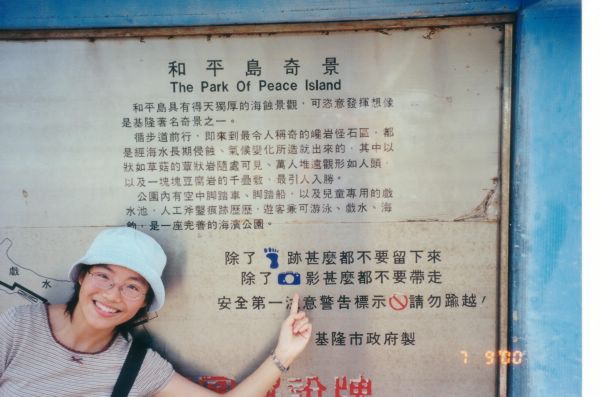 和平島奇景
The Park Of Peace Island
和平島具有得天獨厚的海蝕景觀，可恣意發揮想像
是基隆著名奇景之一。
循步道前行，即來到最令人稱奇的巉岩怪石區，都
是經海水長期侵蝕、氣候變化所造就出來的，其中以
狀如草菇的蕈狀岩隨處可見、萬人堆遠觀形如人頭，
以及一塊塊豆腐岩的千疊敷，最引人入勝。
公園內有空中腳踏車、腳踏船，以及兒童專用的戲
水池，人工斧鑿痕跡歷歷，遊客兼可游泳、戲水、海
釣，是一座完善的海濱公園。
除了 跡甚麼都不要留下來
除了 影甚麼都不要帶走
安全第一注意警告標示 請勿踰越！
戲水
基隆市政府製
7 9'00